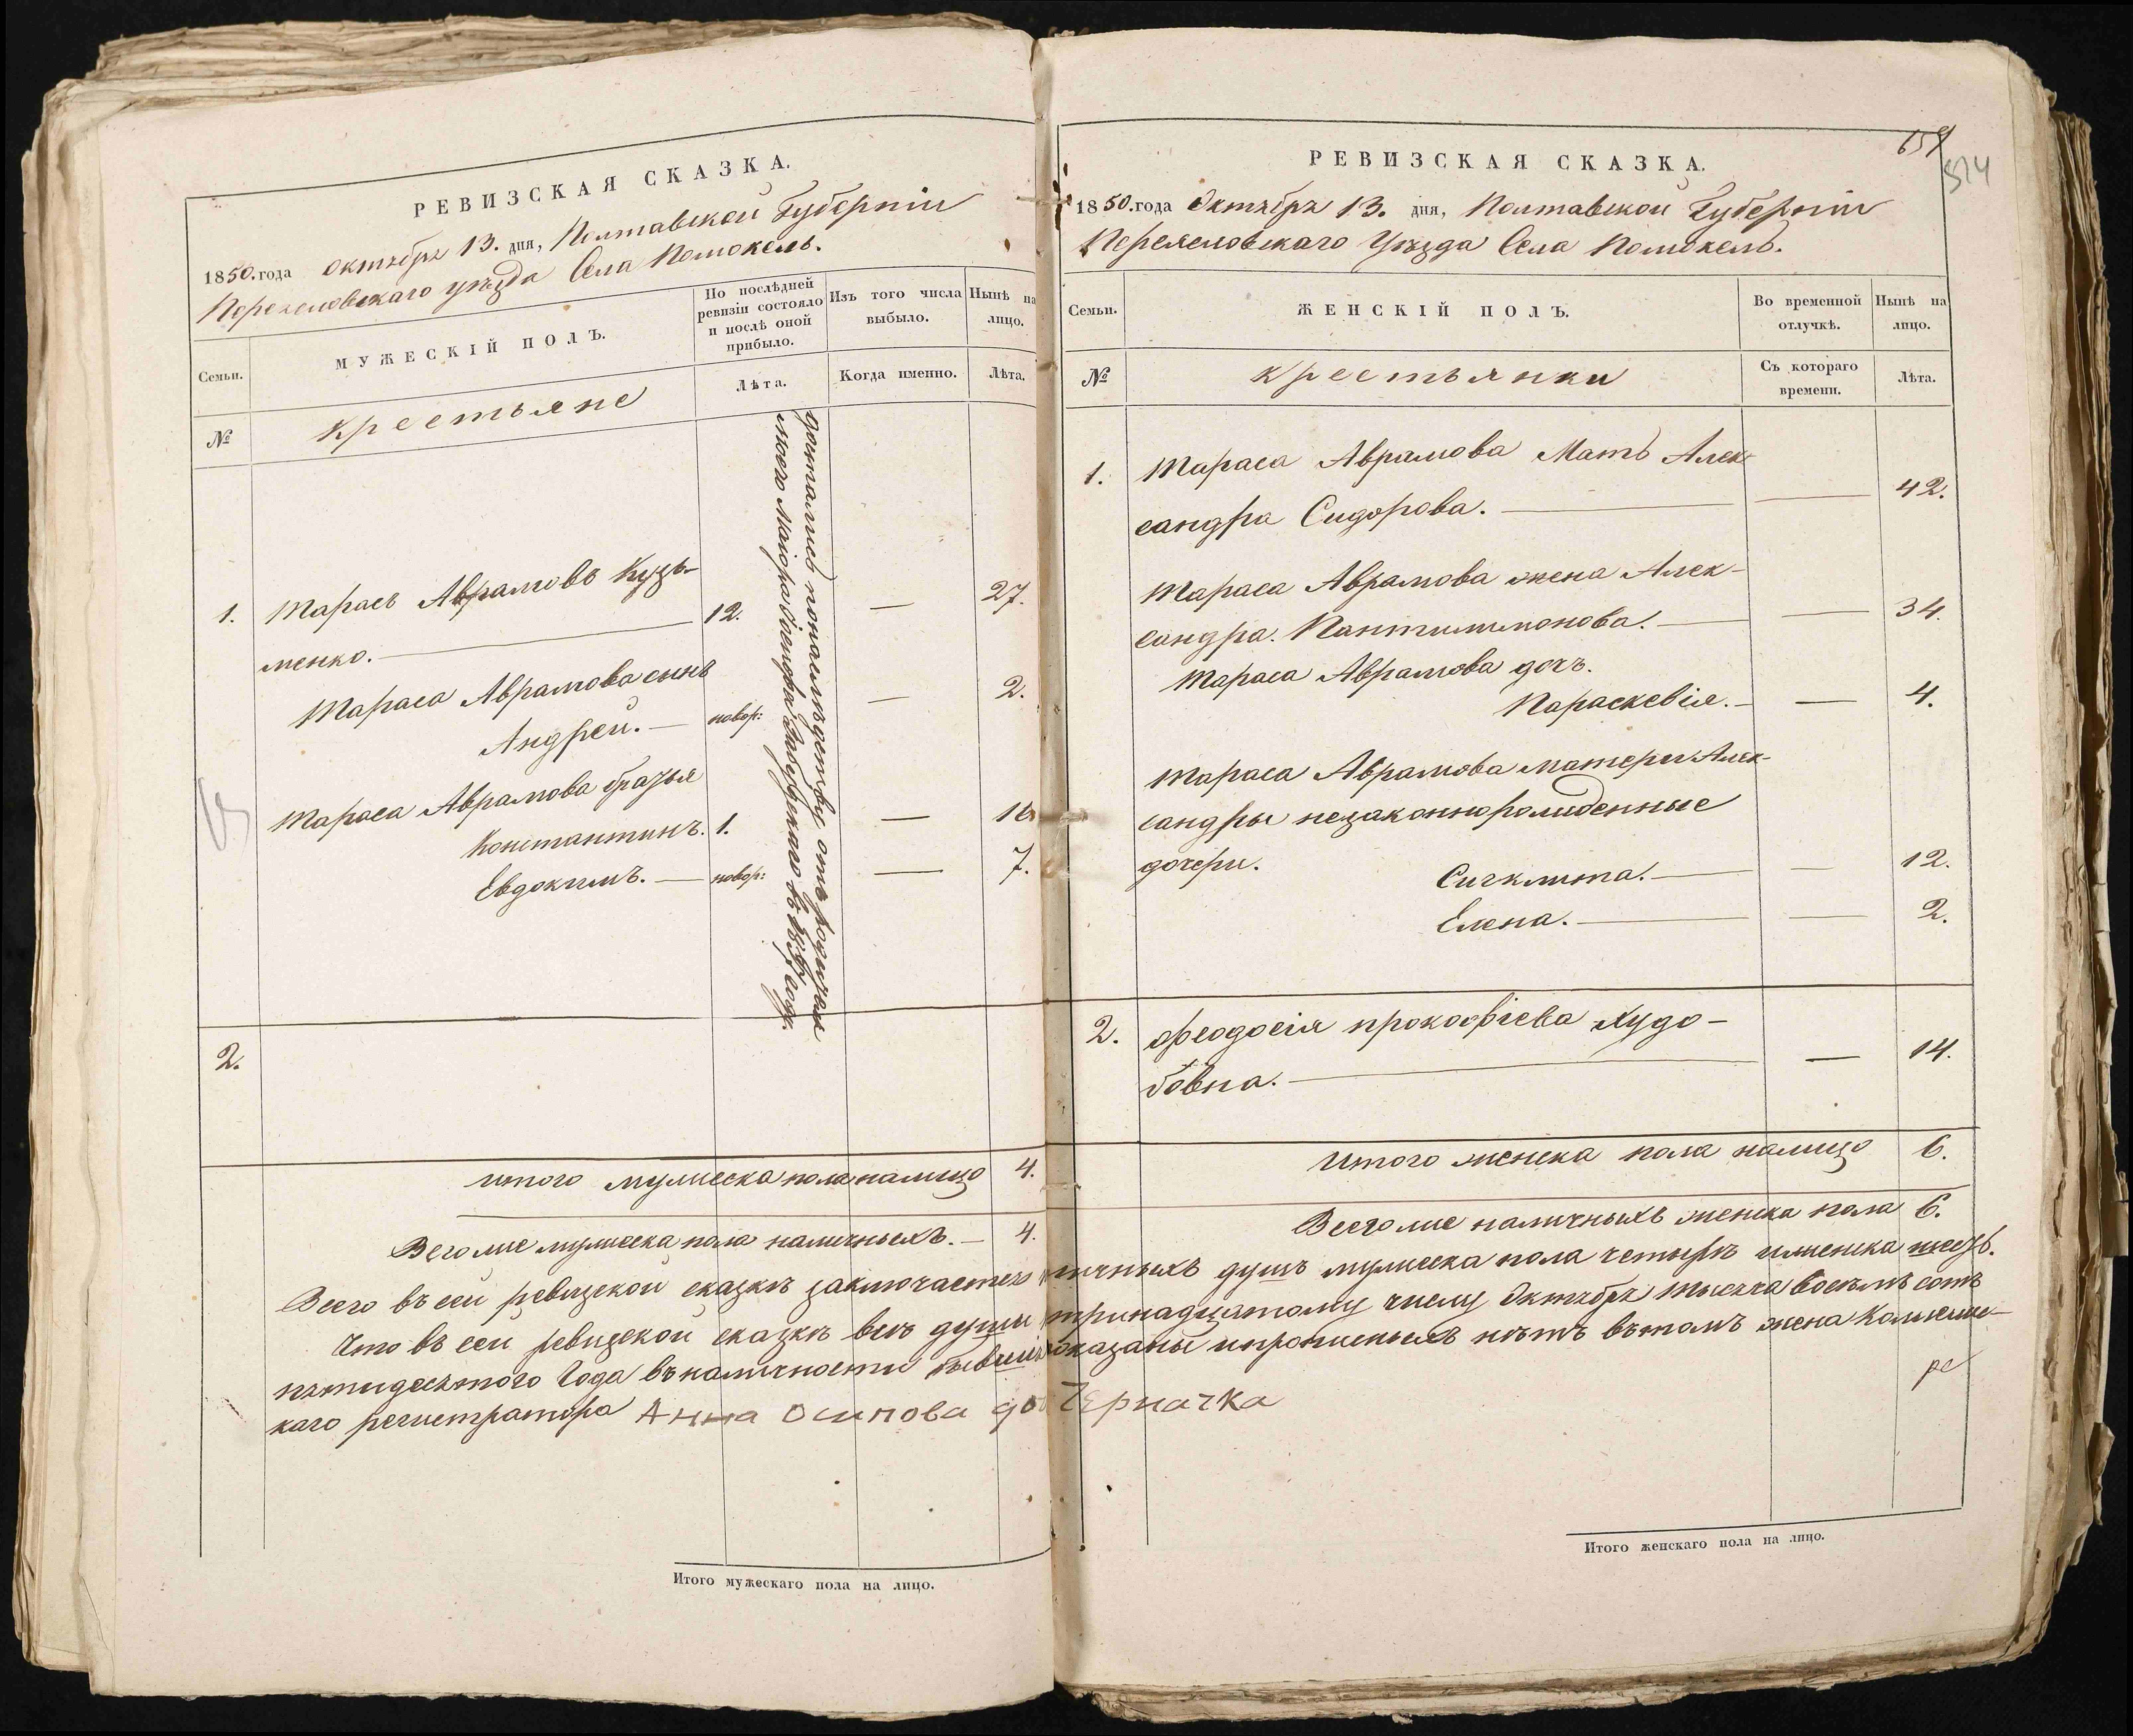 РЕВИЗСКАЯ СКАЗКА.
1850. года октября 13. дня, Полтавской Губерніи
Переяславскаго уѣзда Села Помокель.
Семьи.
МУЖЕСКІЙ ПОЛЪ.
По послѣдней
ревизіи состояло
и послѣ оной
прибыло.
Изъ того числа
выбыло.
Нынѣ на
лицо.
№
крестьяне
Лѣта.
Когда именно.
Лѣта.
1. Тарасъ Аврамовъ Кузь-
менко. 12. 27.
Тараса Аврамова сынъ
Андрей. новор: 2.
Тараса Аврамова братья
Константинъ. 1. 16
Евдокимъ. новор: 7.
достались по наслѣдству отъ родителя
моего Маіора
2.
итого мужеска пола налицо 4.
Всего же мужеска пола наличныхъ. 4.
Всего въ сей ревизской сказкѣ заключается
Что въ сей ревизской сказкѣ всѣ души
пятидесятого Года въ наличности бывшія
каго регистратора Анна Осипова до
Итого мужескаго пола на лицо.
659
514
РЕВИЗСКАЯ СКАЗКА.
1850. года Октября 13. дня, Полтавской Губерніи
Переясловскаго Уѣзда Села Помокель.
Семьи.
ЖЕНСКІЙ ПОЛЪ.
Во временной
отлучкѣ.
Нынѣ на
лицо.
№
крестьянки
Съ котораго
времени.
Лѣта.
1. Тараса Аврамова Мать Алек-
сандра Сидорова. 42.
Тараса Аврамова жена Алек-
сандра. Пантилимонова. 34.
Тараса Аврамова дочъ.
Параскевія. 4.
Тараса Аврамова матери Алек-
сандры незаконнорожденные
дочери. Сигклита. 12.
Елена. 2.
2. Феодосія прокофіева Худо-
бовна. 14.
Итого женска пола налицо 6.
Всего же наличныхъ женска пола 6.
личныхъ душъ мужеска пола четырѣ и женска шесть.
тринадцатому числу Октября тысяча восѣмъ сотъ
показаны и прописныхъ нѣтъ въ томъ жена Колежс-
ре
Черначка
Итого женскаго пола на лицо.